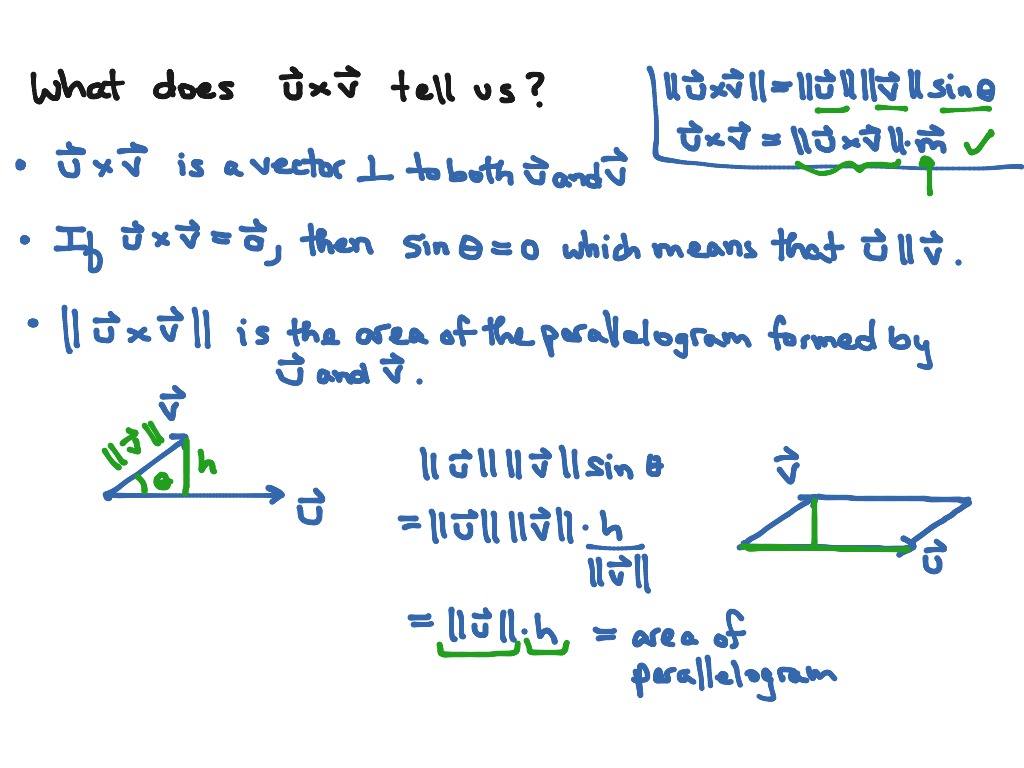 What does u⃗×v⃗ tell us?
‖u⃗×v⃗‖=‖u⃗‖‖v⃗‖sinθ
u⃗×v⃗ = ‖u⃗×v⃗‖·m⃗ ✓
• u⃗×v⃗ is a vector ⊥ to both u⃗ and v⃗
• If u⃗×v⃗=0⃗, then sinθ=0 which means that u⃗ ‖ v⃗.
• ‖u⃗×v⃗‖ is the area of the parallelogram formed by
u⃗ and v⃗.
v⃗
‖v⃗‖
h
θ
u⃗
‖u⃗‖‖v⃗‖sinθ
=‖u⃗‖‖v⃗‖·h
‖v⃗‖
=‖u⃗‖·h = area of
parallelogram
v⃗
u⃗